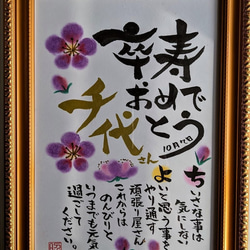 卒寿
おめで
とう
千代さん
ちいさな事は
気にしな
よいと思う事を
やり通す
頑張り屋さん
これからは
のんびりと
いつまでも元気
過ごして
ください。